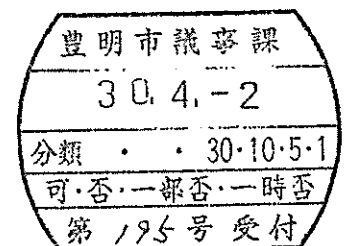 豊明市議事課
30.4.-2
分類 ・ ・ 30・10・5・1
可・否・一部否・一時否
第 195 号 受付